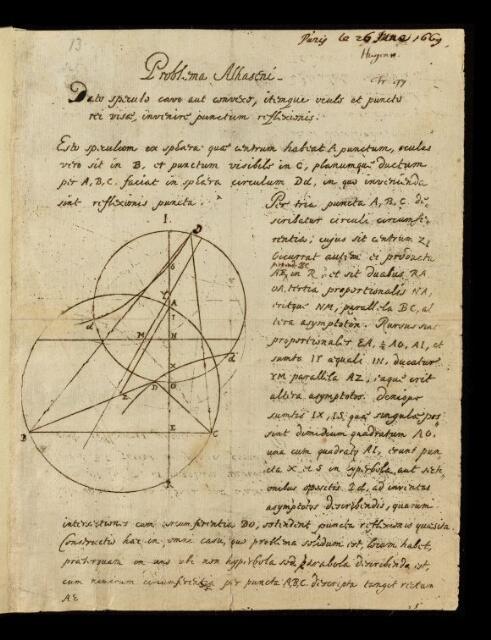 13
Paris le 26 June 1669
Hugens
Problema Alhaseni
Dato speculo cavo aut convexo, itemque oculo et puncto
rei visæ, invenire punctum reflexionis.
Esto speculum ex sphæra quæ centrum habeat A punctum, oculus
vero sit in B, et punctum visibile in C, planumque ductum
per A, B, C, faciat in sphæra circulum Dd, in quo invenienda
sint reflexionis puncta.
Per tria puncta A, B, C de
scribatur circuli circumfe
rentia, cujus sit centrum Z.
Occurrat autem ei producta
AE, in R, et sit duabus RA
OA, tertia proportionalis NA,
eritque NM, parallela BC, al
tera asymptoton. Rursus sint
proportionales EA, ½ AO, AI, et
sumto IY æquali IN, ducatur
YM parallela AZ, eaque erit
altera asymptotos. Denique
sumtis IX, IS, quæ singulæ pos
sint dimidium quadratum AO,
una cum quadrato AI, erunt pun
cta X et S in hyperbola, aut sect
onibus oppositis Dd, ad inventas
asymptotos describendis, quarum
intersectiones cum circumferentia DO, ostendent puncta reflexionis quæsita.
Constructio hæc in omni casu, quo problema solidum est, locum habet,
præterquam in uno ubi non hyperbola sed parabola describenda est,
cum nempe circumferentia per puncta A, B, C descripta tangit rectam
AE
I
D
G
Y
A
I
d
M
N
d
X
Z
D
O
B
E
C
R